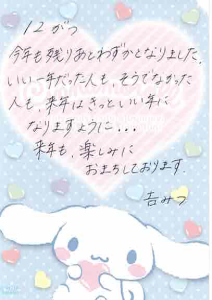 12がつ
今年も残りあとわずかとなりました。
いい一年だった人も、そうでなかった
人も、来年はきっといい年に
なりますように...
来年も、楽しみに
おまちしております。
吉みつ